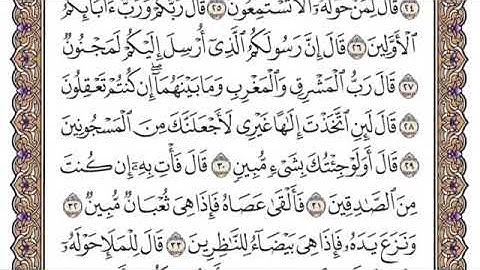 قَالَ لِمَنْ حَوْلَهُۥٓ أَلَا تَسْتَمِعُونَ ٢٥ قَالَ رَبُّكُمْ وَرَبُّ ءَابَآئِكُمُ
ٱلْأَوَّلِينَ ٢٦ قَالَ إِنَّ رَسُولَكُمُ ٱلَّذِىٓ أُرْسِلَ إِلَيْكُمْ لَمَجْنُونٌ
٢٧ قَالَ رَبُّ ٱلْمَشْرِقِ وَٱلْمَغْرِبِ وَمَا بَيْنَهُمَآ إِن كُنتُمْ تَعْقِلُونَ
٢٨ قَالَ لَئِنِ ٱتَّخَذْتَ إِلَٰهًا غَيْرِى لَأَجْعَلَنَّكَ مِنَ ٱلْمَسْجُونِينَ
٢٩ قَالَ أَوَلَوْ جِئْتُكَ بِشَىْءٍ مُّبِينٍ ٣٠ قَالَ فَأْتِ بِهِۦٓ إِن كُنتَ
مِنَ ٱلصَّٰدِقِينَ ٣١ فَأَلْقَىٰ عَصَاهُ فَإِذَا هِىَ ثُعْبَانٌ مُّبِينٌ ٣٢
وَنَزَعَ يَدَهُۥ فَإِذَا هِىَ بَيْضَآءُ لِلنَّٰظِرِينَ ٣٣ قَالَ لِلْمَلَإِ حَوْلَهُۥٓ